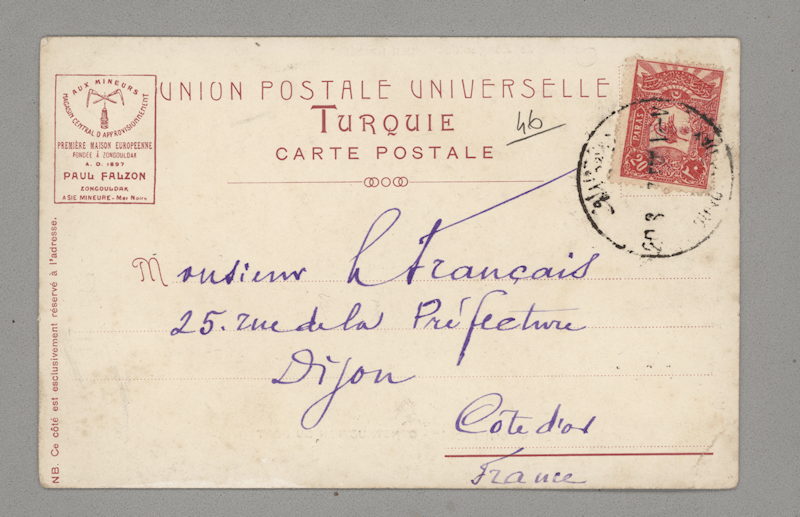 AUX MINEURS
MAGASIN CENTRAL D'APPROVISIONNEMENT
PREMIÈRE MAISON EUROPÉENNE
FONDÉE À ZONGOULDAK
A. D. 1897
PAUL FALZON
ZONGOULDAK
ASIE MINEURE - Mer Noire
UNION POSTALE UNIVERSELLE
TURQUIE
CARTE POSTALE
46
PARAS
20
Monsieur h Français
25. rue de la Préfecture
Dijon
Côte d'or
France
NB. Ce côté est exclusivement réservé à l'adresse.